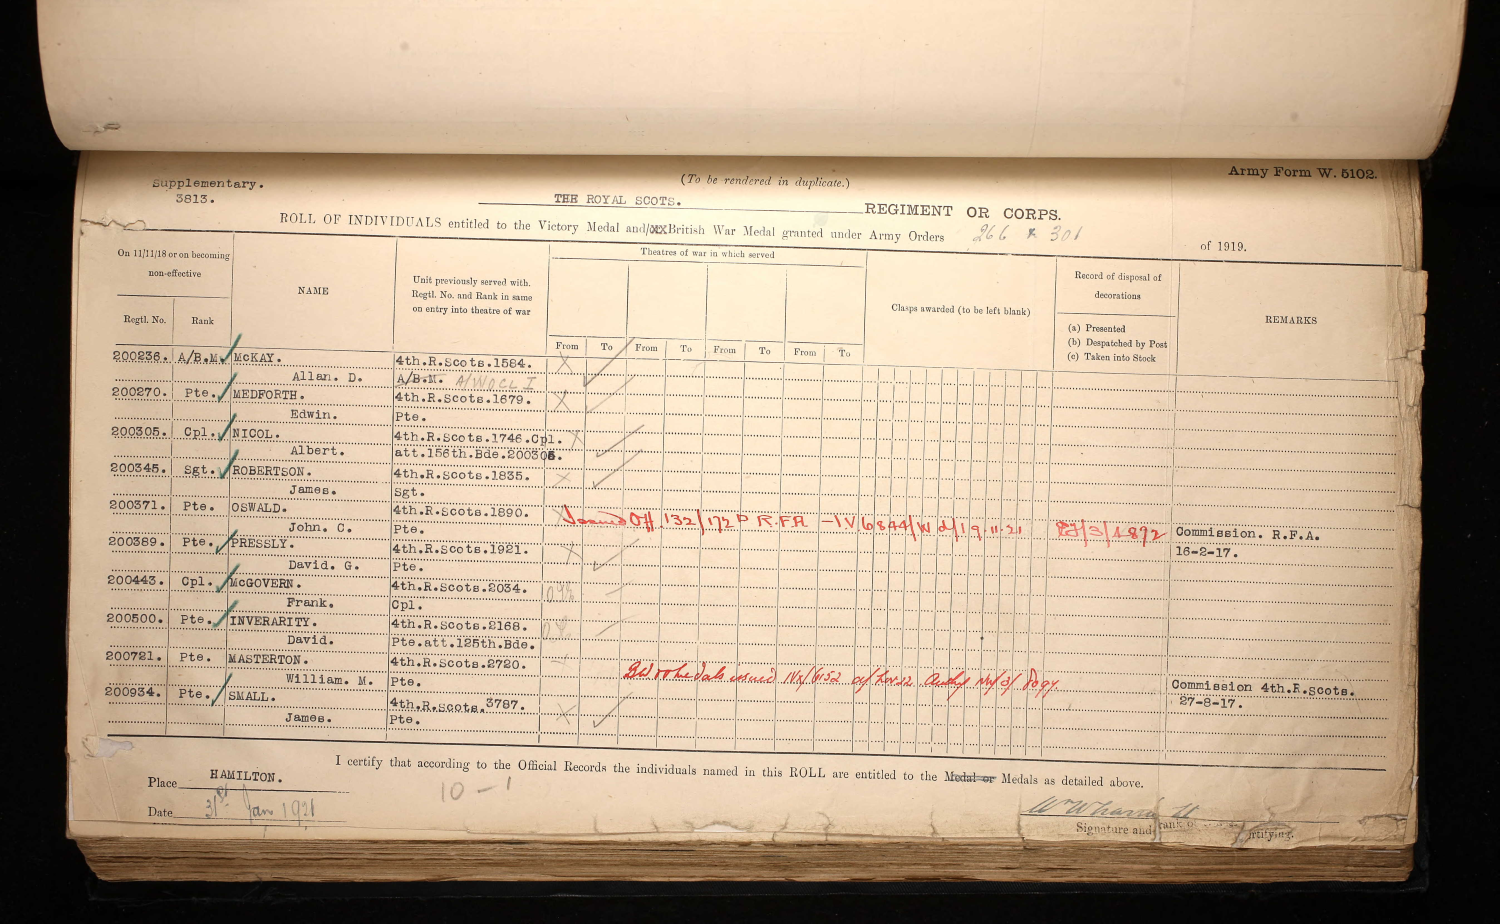 Army Form W. 5102.
Supplementary.
3813.
(To be rendered in duplicate.)
THE ROYAL SCOTS. REGIMENT OR CORPS.
ROLL OF INDIVIDUALS entitled to the Victory Medal and/XX British War Medal granted under Army Orders 266 & 301 of 1919.
On 11/11/18 or on becoming non-effective
Regtl. No.
Rank
NAME
Unit previously served with. Regtl. No. and Rank in same on entry into theatre of war
Theatres of war in which served
From To From To From To From To
Clasps awarded (to be left blank)
Record of disposal of decorations
(a) Presented
(b) Despatched by Post
(c) Taken into Stock
REMARKS
200236. A/B.M. McKAY. 4th.R.Scots.1584.
Allan. D. A/B.M. A/WO CL I
200270. Pte. MEDFORTH. 4th.R.Scots.1679.
Edwin. Pte.
200305. Cpl. NICOL. 4th.R.Scots.1746.Cpl.
Albert. att.156th.Bde.200305.
200345. Sgt. ROBERTSON. 4th.R.Scots.1835.
James. Sgt.
200371. Pte. OSWALD. 4th.R.Scots.1890.
John. C. Pte. Issued Off. 132/172 P R.F.A - IV 6844/W d/19.11.21 /3/1892 Commission. R.F.A.
16-2-17.
200389. Pte. PRESSLY. 4th.R.Scots.1921.
David. G. Pte.
200443. Cpl. McGOVERN. 4th.R.Scots.2034.
Frank. Cpl.
200500. Pte. INVERARITY. 4th.R.Scots.2168.
David. Pte.att.125th.Bde.
200721. Pte. MASTERTON. 4th.R.Scots.2720.
William. M. Pte. medals issued Commission 4th.R.Scots.
27-8-17.
200934. Pte. SMALL. 4th.R.Scots.3787.
James. Pte.
I certify that according to the Official Records the individuals named in this ROLL are entitled to the Medal or Medals as detailed above.
Place HAMILTON.
10 - 1
Date 31st Jan 1921
Signature and rank of certifying.